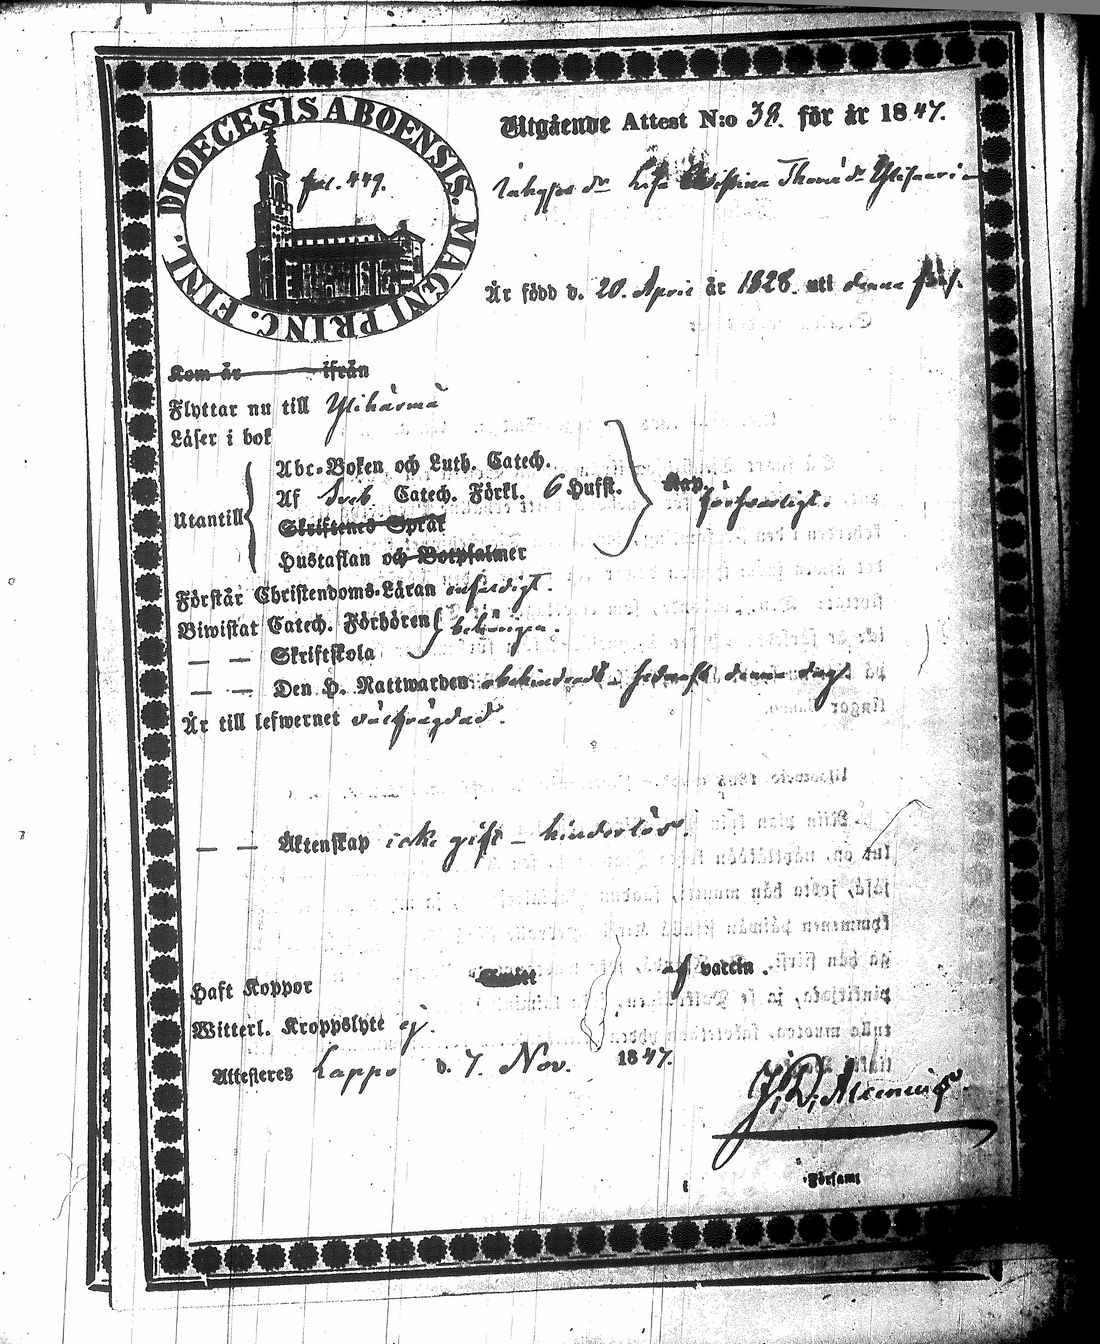 DIOECESIS ABOENSIS. MAGNI PRINC. FINL.
fol. 449.
Utgående Attest N:o 38. för år 1847.
Inhyses dr Lisa Christina Thomæ dr Ylisaari
Är född d. 20. April år 1828. uti denna förs.
Kom år ifrån
Flyttar nu till Ylihärmä
Läser i bok
Abc-Boken och Luth. Catech.
Af Sveb. Catech. Förkl. 6 Hufst.
Utantill
Skriftenes Språk
Hustaflan och Botpsalmer
Kap.
försvarligt.
Förstår Christendoms-Läran enfaldigt.
Biwistat Catech. Förhören
Skriftskola
behörigen.
— — Den H. Nattwarden obehindradt
Är till lefwernet välfrägdad.
— — Äktenskap icke gift – hinderlös.
Haft Koppor af vaccin.
Witterl. Kroppslyte ej.
Attesteres Lappo d. 7. Nov. 1847.
J. D. Alcenius
Församl